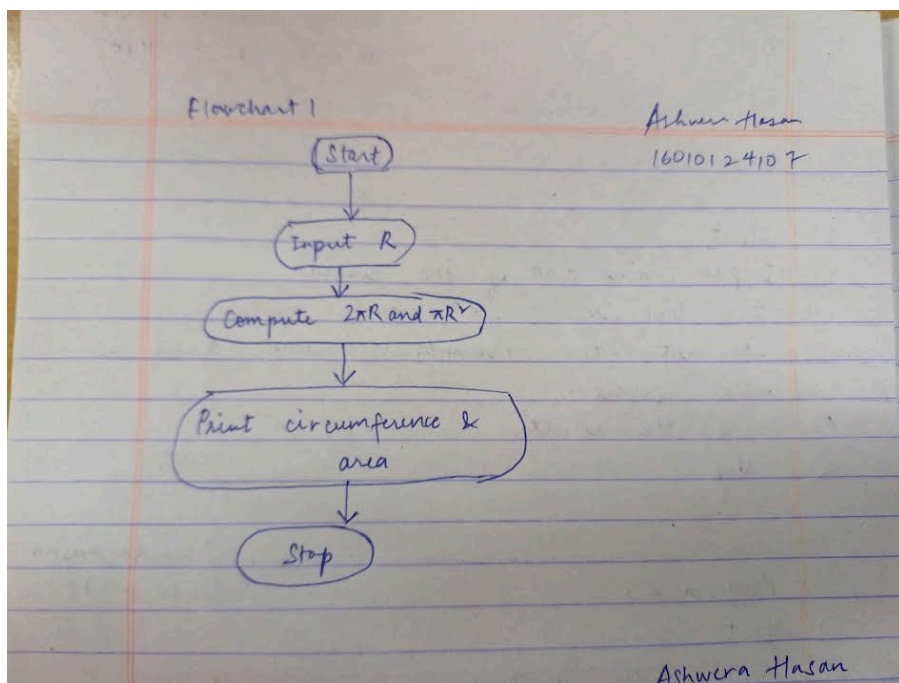 Flowchart 1
Ashwera Hasan
16010124107
Start
Input R
Compute 2πR and πR²
Print circumference &
area
Stop
Ashwera Hasan